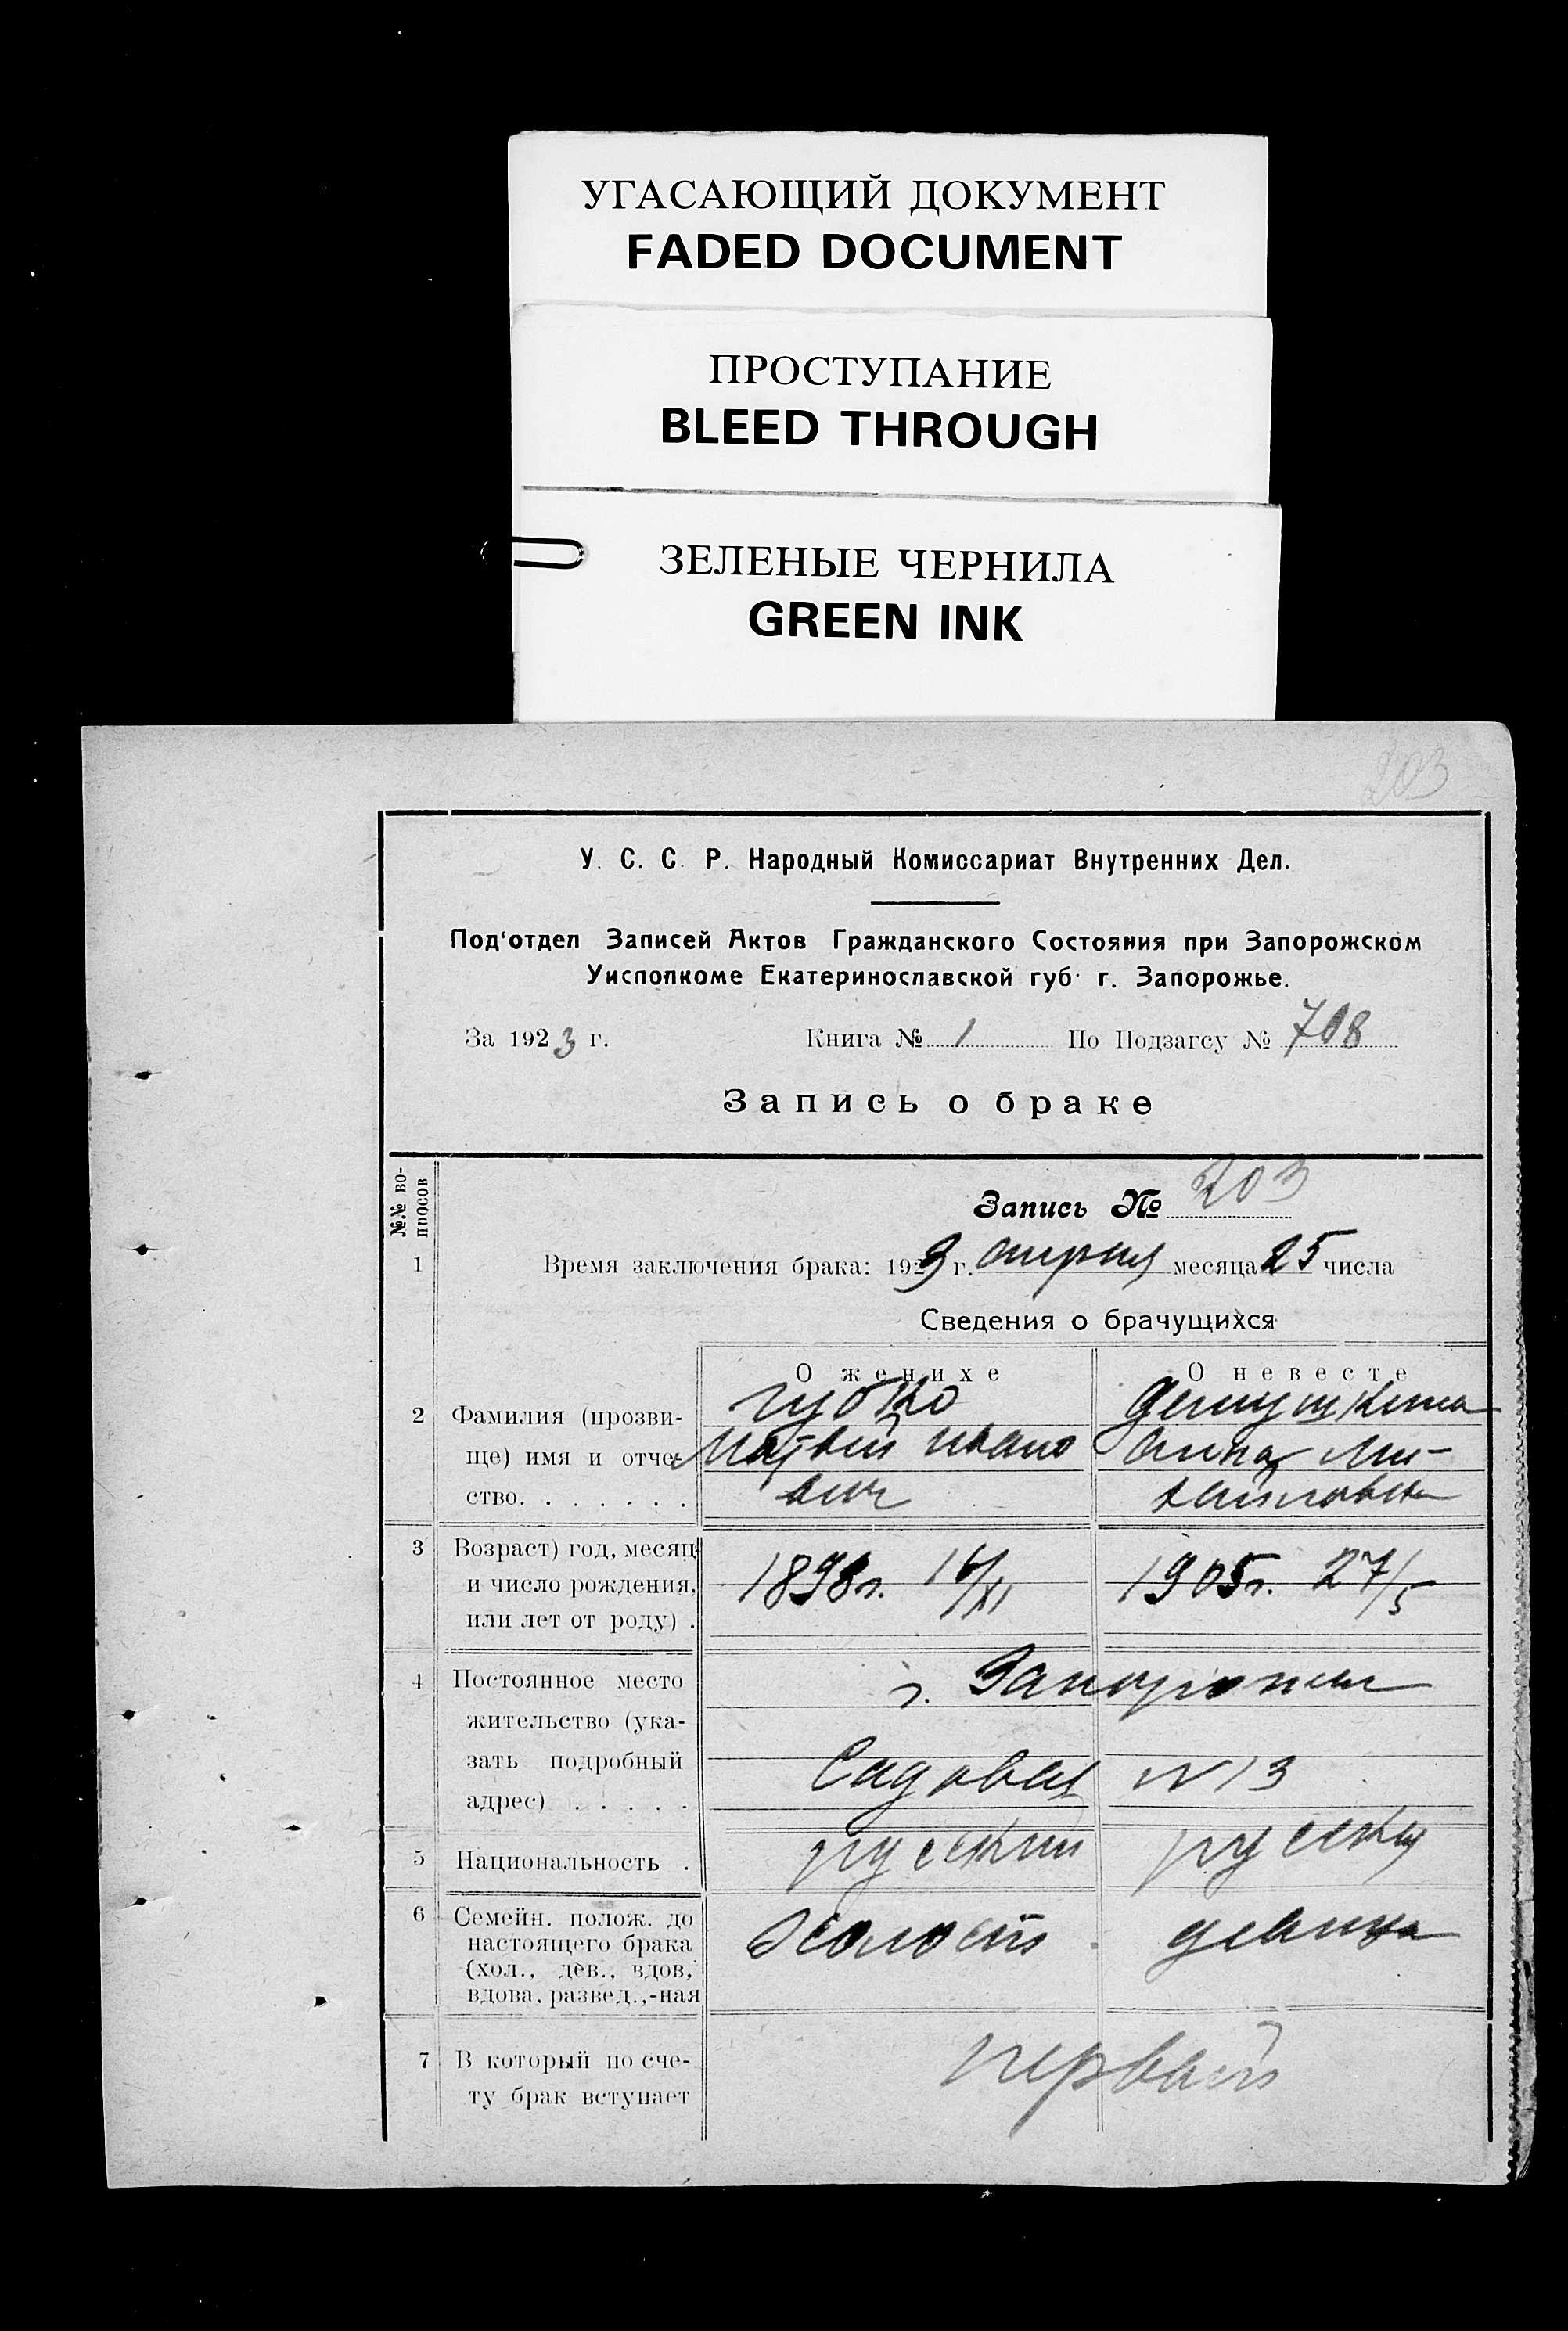 УГАСАЮЩИЙ ДОКУМЕНТ
FADED DOCUMENT
ПРОСТУПАНИЕ
BLEED THROUGH
ЗЕЛЕНЫЕ ЧЕРНИЛА
GREEN INK
203
У. С. С. Р. Народный Комиссариат Внутренних Дел.
Под‘отдел Записей Актов Гражданского Состояния при Запорожском
Уисполкоме Екатеринославской губ. г. Запорожье.
За 1923 г. Книга № 1 По Подзагсу № 708
Запись о браке
№.№ во-
просов
Запись № 203
1 Время заключения брака: 1923 г. апреля месяца 25 числа
Сведения о брачущихся
О женихе О невесте
2 Фамилия (прозви- Губко
ще) имя и отче- Матвей Ивано Анна Ми-
ство. . . . . . . вич хайловна
3 Возраст) год, месяц
и число рождения, 1898г. 16/XI 1905г. 27/5
или лет от роду) .
4 Постоянное место г. Запорожье
жительство (ука-
зать подробный Садовая № 13
адрес) . . . . .
5 Национальность . русский русская
6 Семейн. полож. до холост девица
настоящего брака
(хол., дев., вдов,
вдова, развед.,-ная
7 В который по сче- первый
ту брак вступает